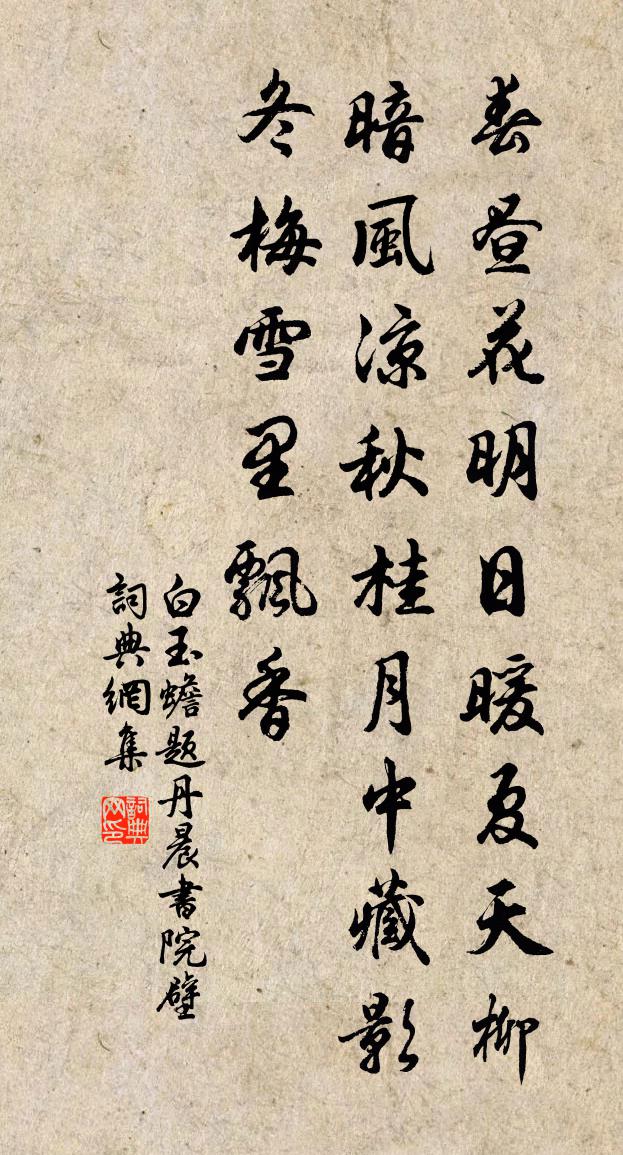 春昼花明日暖夏天柳
暗風涼秋桂月中藏影
冬梅雪里飄香
白玉蟾题丹晨書院壁
詞典網集
詞典
网印